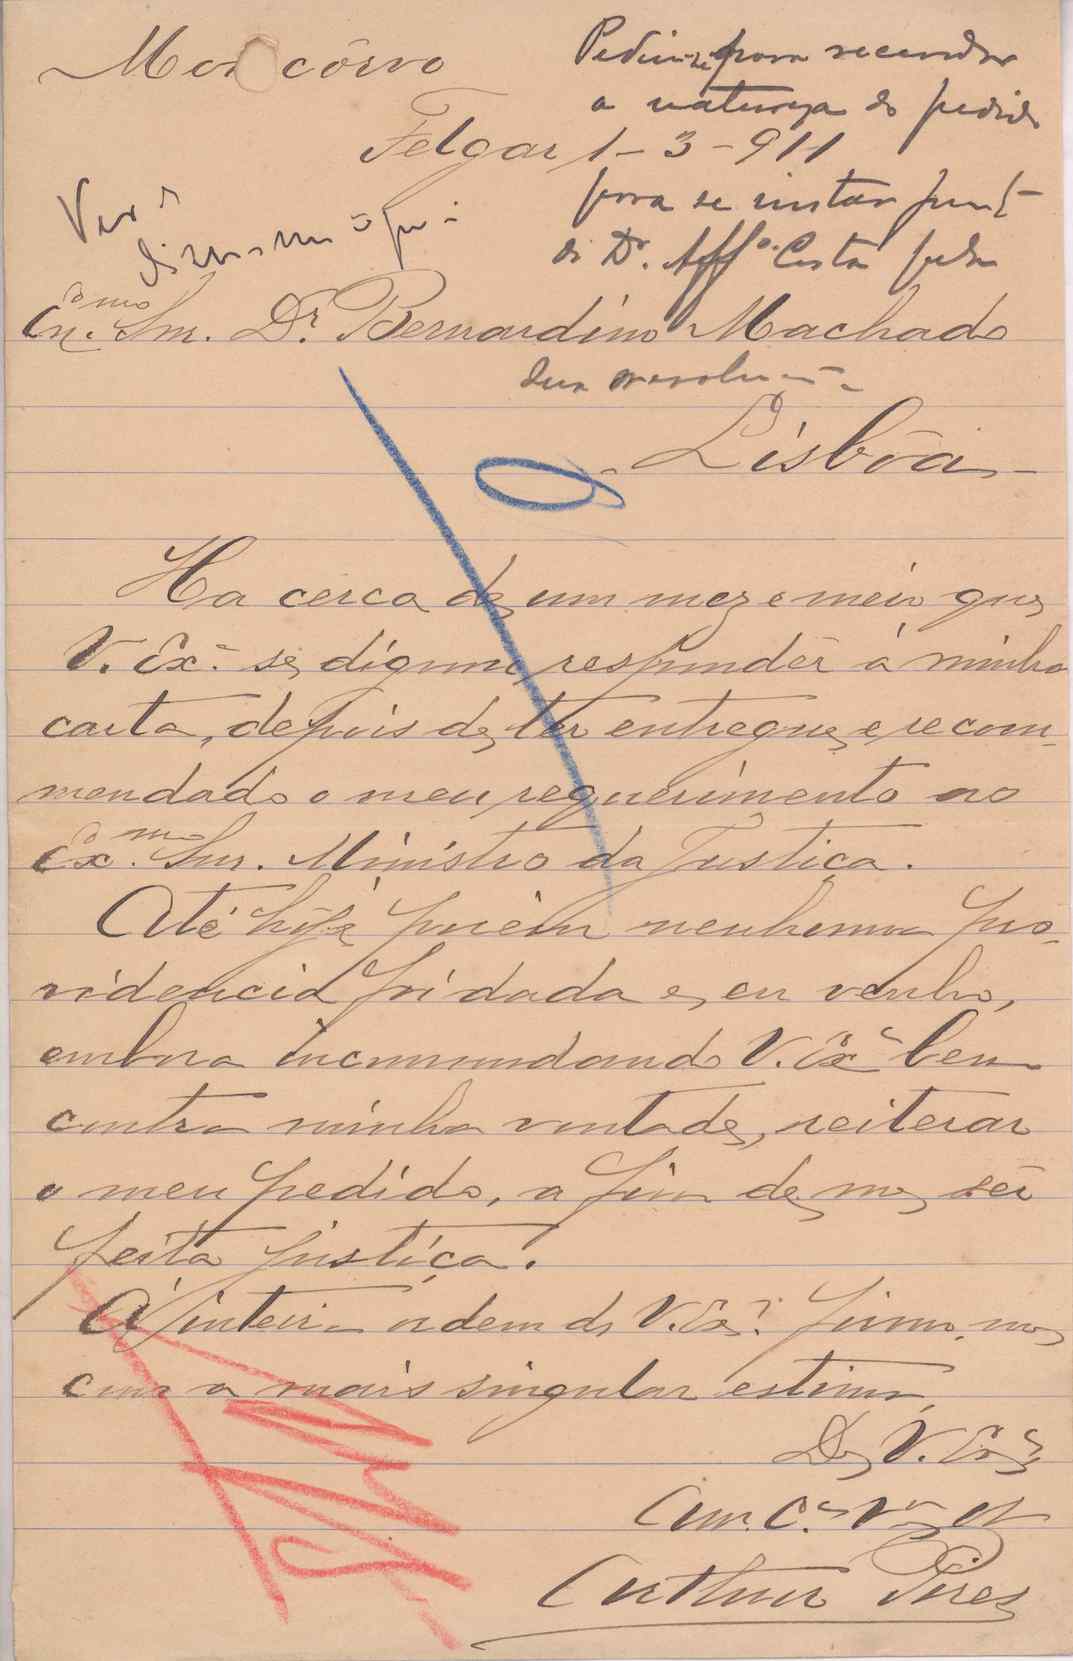 Moncôrvo
Pedin-se para recordar
a natureza do pedido
Felgar 1-3-911
para se instar junto
do Dr. Affº. Costa pela
Exmo. Snr. Dr. Bernardino Machado
sua resolução
Lisbôa
Ha cerca de um mez e meio que
V. Exª. se dignou responder á minha
carta, depois de ter entregue e recom-
mendado o meu requerimento ao
Exmo. Snr. Ministro da Justiça.
Até hoje porém nenhuma pro-
videncia foi dada e eu venho,
embora incommodando V. Exª bem
contra minha vontade, reiterar
o meu pedido, a fim de me ser
feita justiça.
A' inteira ordem de V. Exª. firmo-me
com a mais singular estima,
De V. Exª
Arthur Pires